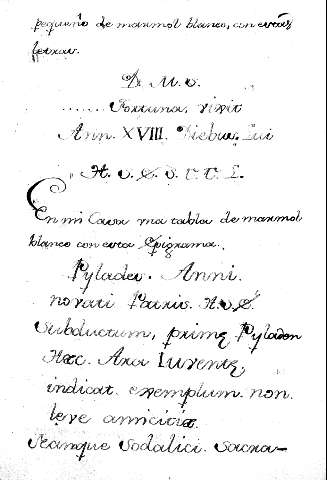 pequeño de marmol blanco, con estas
letras.
D. M. s.
...... Fortuna. vixit
Ann. XVIII. Diebus. Lui
H. s. E. s. T. T. L.
En mi Casa una tabla de marmol
blanco con esta Epigrama.
Pylades. Anni.
novati Patris. H. s. E.
Subductum, prime Pyladen
Hæc. Ara Iuventę
indicat. exemplum. non.
leve amicitiæ.
Namque Sodalici. Sacra-